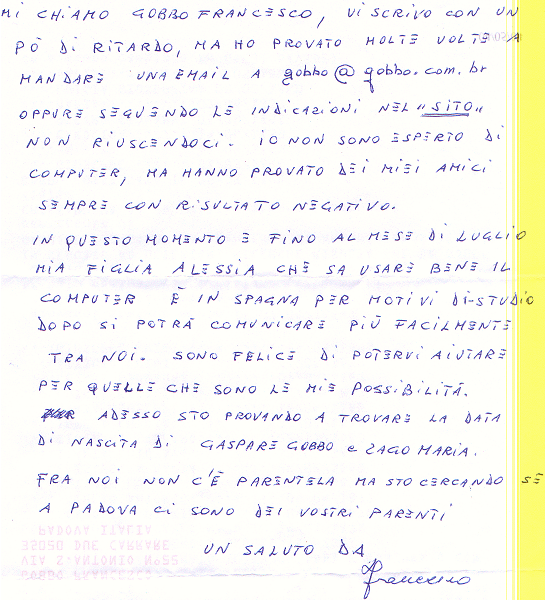 MI CHIAMO GOBBO FRANCESCO, VI SCRIVO CON UN
PÒ DI RITARDO, MA HO PROVATO MOLTE VOLTE A
MANDARE UNA EMAIL A gobbo@gobbo.com.br
OPPURE SEGUENDO LE INDICAZIONI NEL "SITO"
NON RIUSCENDOCI. IO NON SONO ESPERTO DI
COMPUTER, MA HANNO PROVATO DEI MIEI AMICI
SEMPRE CON RISULTATO NEGATIVO.
IN QUESTO MOMENTO E FINO AL MESE DI LUGLIO
MIA FIGLIA ALESSIA CHE SA USARE BENE IL
COMPUTER È IN SPAGNA PER MOTIVI DI-STUDIO
DOPO SI POTRÀ COMUNICARE PIÙ FACILMENTE
TRA NOI. SONO FELICE DI POTERVI AIUTARE
PER QUELLE CHE SONO LE MIE POSSIBILITÀ.
ADESSO STO PROVANDO A TROVARE LA DATA
DI NASCITA DI GASPARE GOBBO e ZAGO MARIA.
FRA NOI NON C'È PARENTELA MA STO CERCANDO SE
A PADOVA CI SONO DEI VOSTRI PARENTI
UN SALUTO DA
Francesco
PADOVA ITALIA
35020 DUE CARRARE
VIA S. ANTONIO N°55
GOBBO FRANCESCO